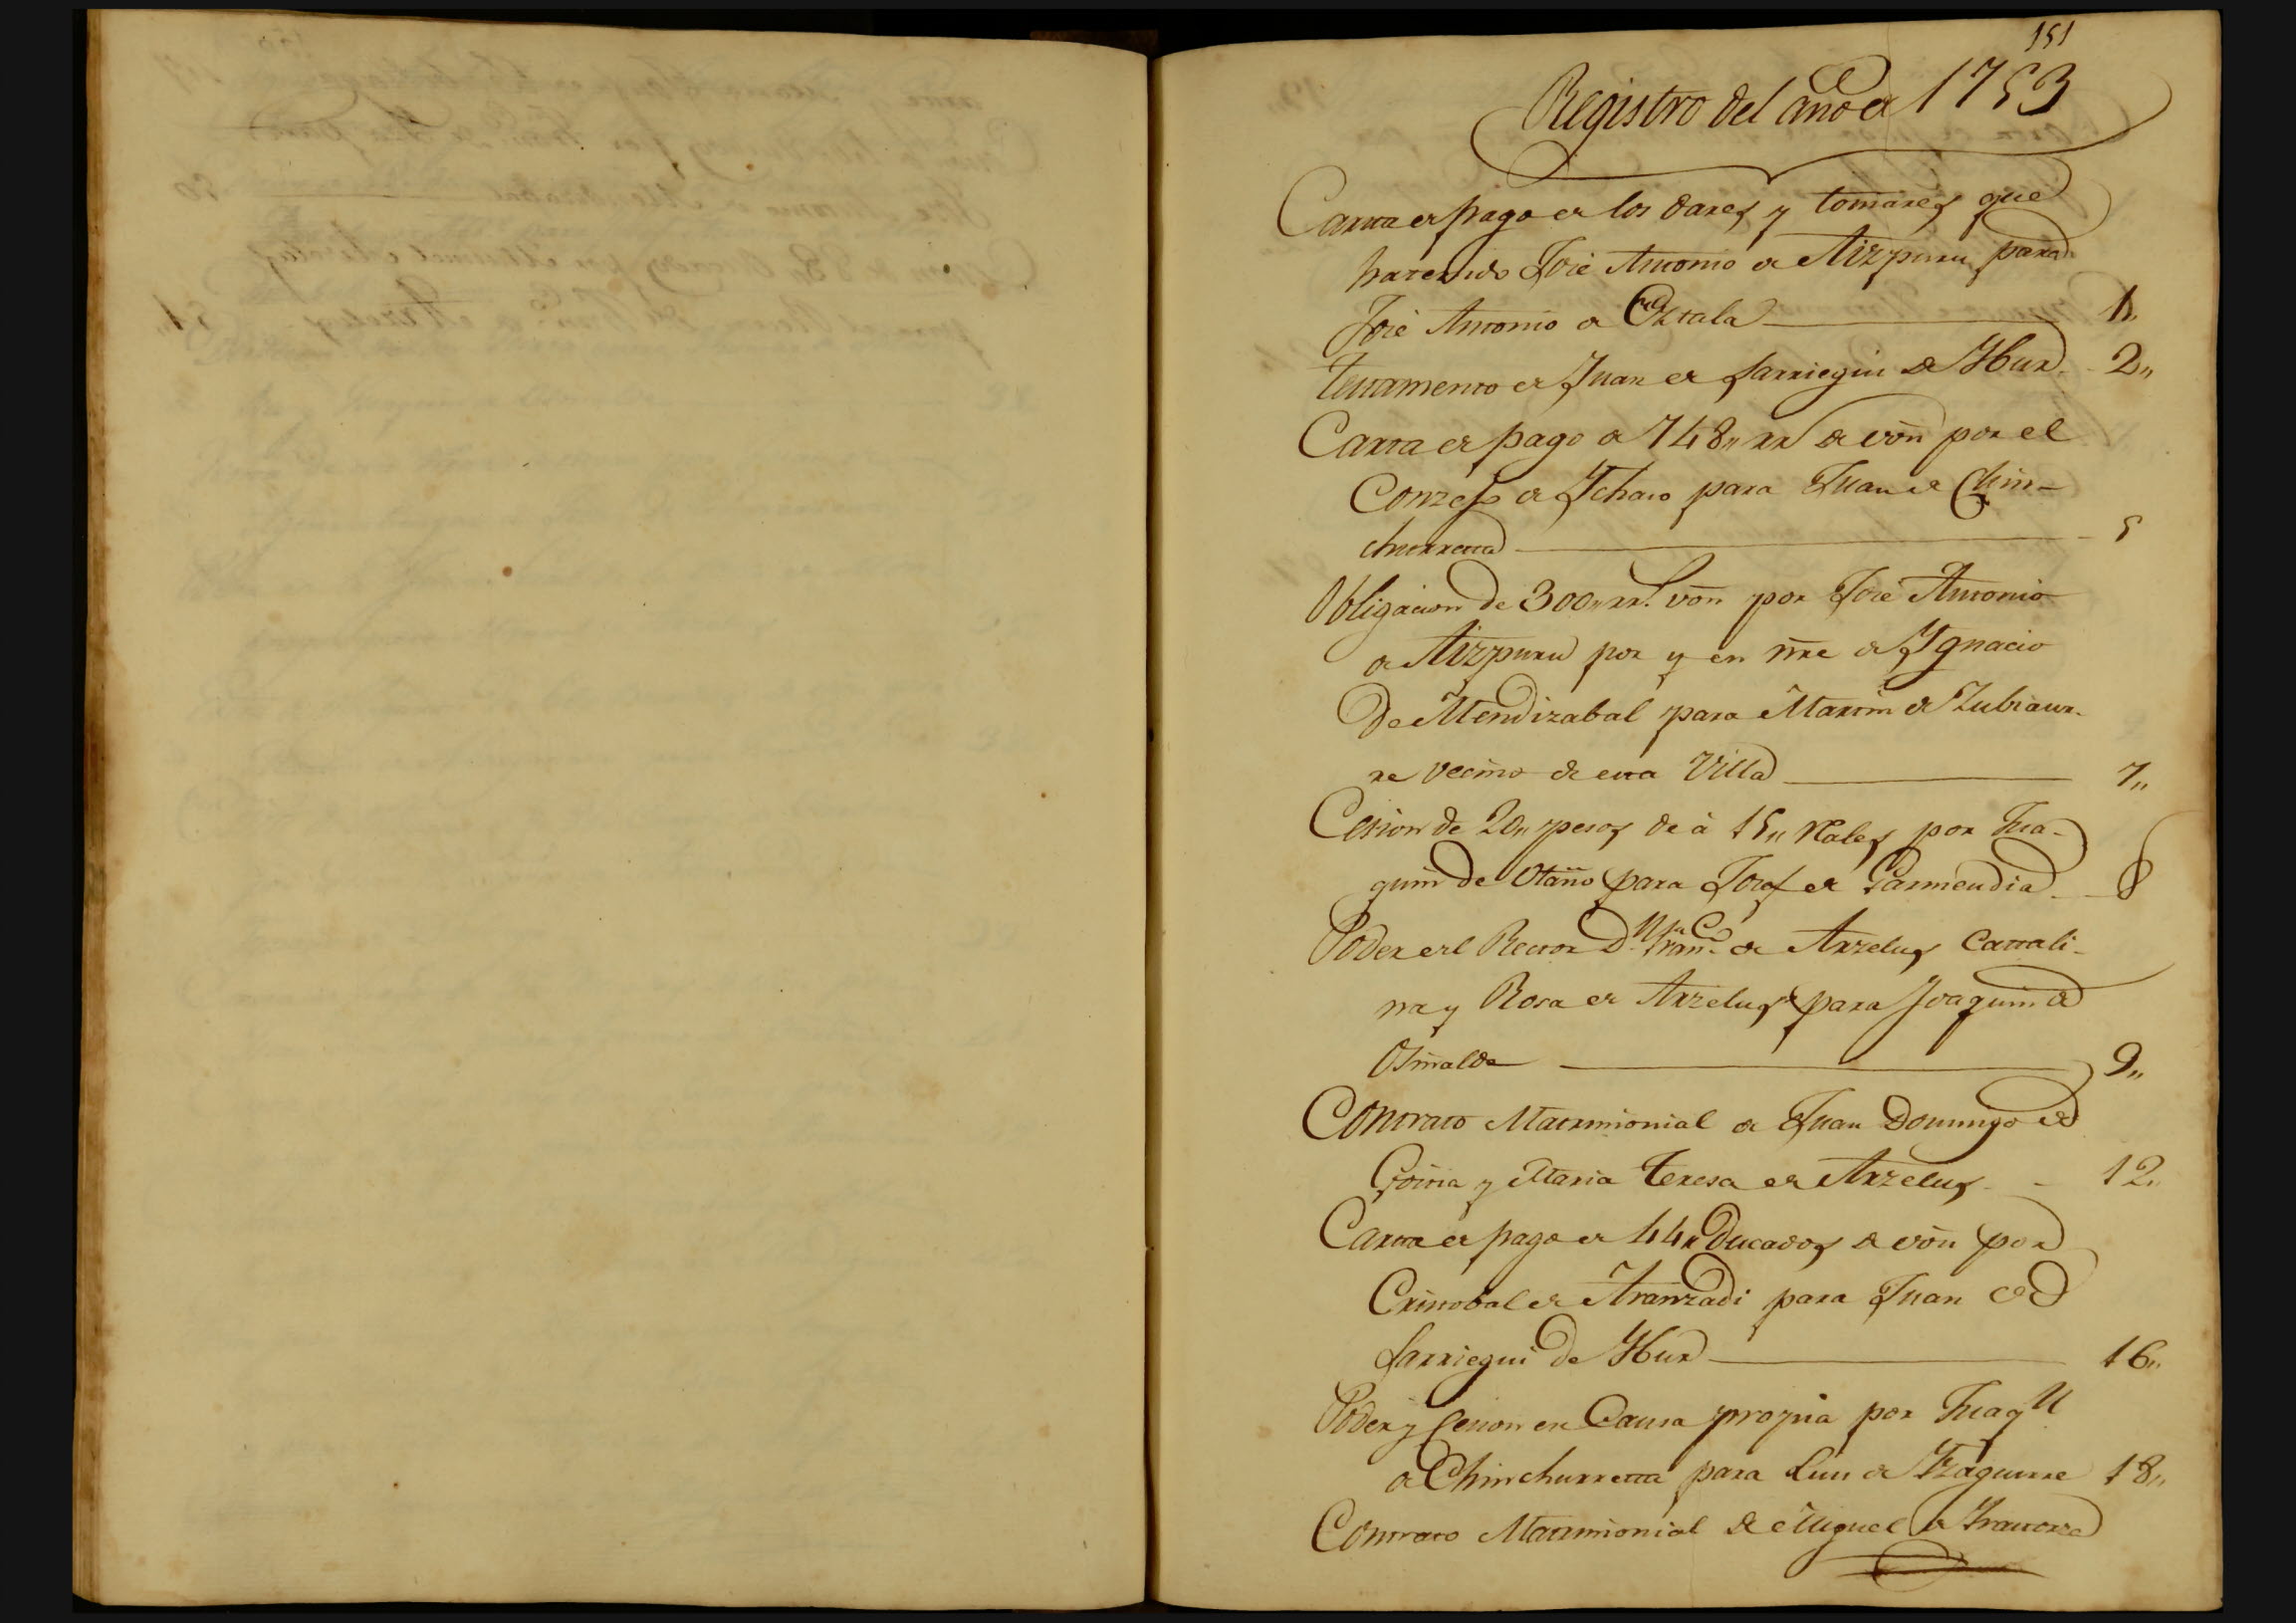 151
Registro del año de 1753
Carta de pago de los dares y tomares que
han tenido José Antonio de Aizpuru para
José Antonio de Oztala 1,,
Testamento de Juan de Sarriegui de Ybur 2,,
Carta de pago de 748,, rr de von por el
Conzejo de Ychaso para Juan de Chin-
churreta 5
Obligacion de 300,, rr. von por José Antonio
de Aizpuru por y en nre de Ygnacio
De Mendizabal para Martin de Zubiaur-
re vecino de esta Villa 7,,
Cesion de 20,, pesos de à 15,, Rales por Jua-
quin de Otaño para Josef de Garmendia 8
Poder del Rector D. Fran.co de Arzelus Catali-
na y Rosa de Arzelus para Joaquin de
Osinalde 9,,
Contrato Matrimonial de Juan Domingo de
Goiria y Maria Teresa de Arzelus 12,,
Carta de pago de 44,, Ducados de von por
Cristobal de Aranzadi para Juan de
Sarriegui de Ybur 16,,
Poder y Cesion en Causa propria por Juaq.n
de Chinchurreta para Luis de Yzaguirre 18,,
Contrato Matrimonial de Miguel de